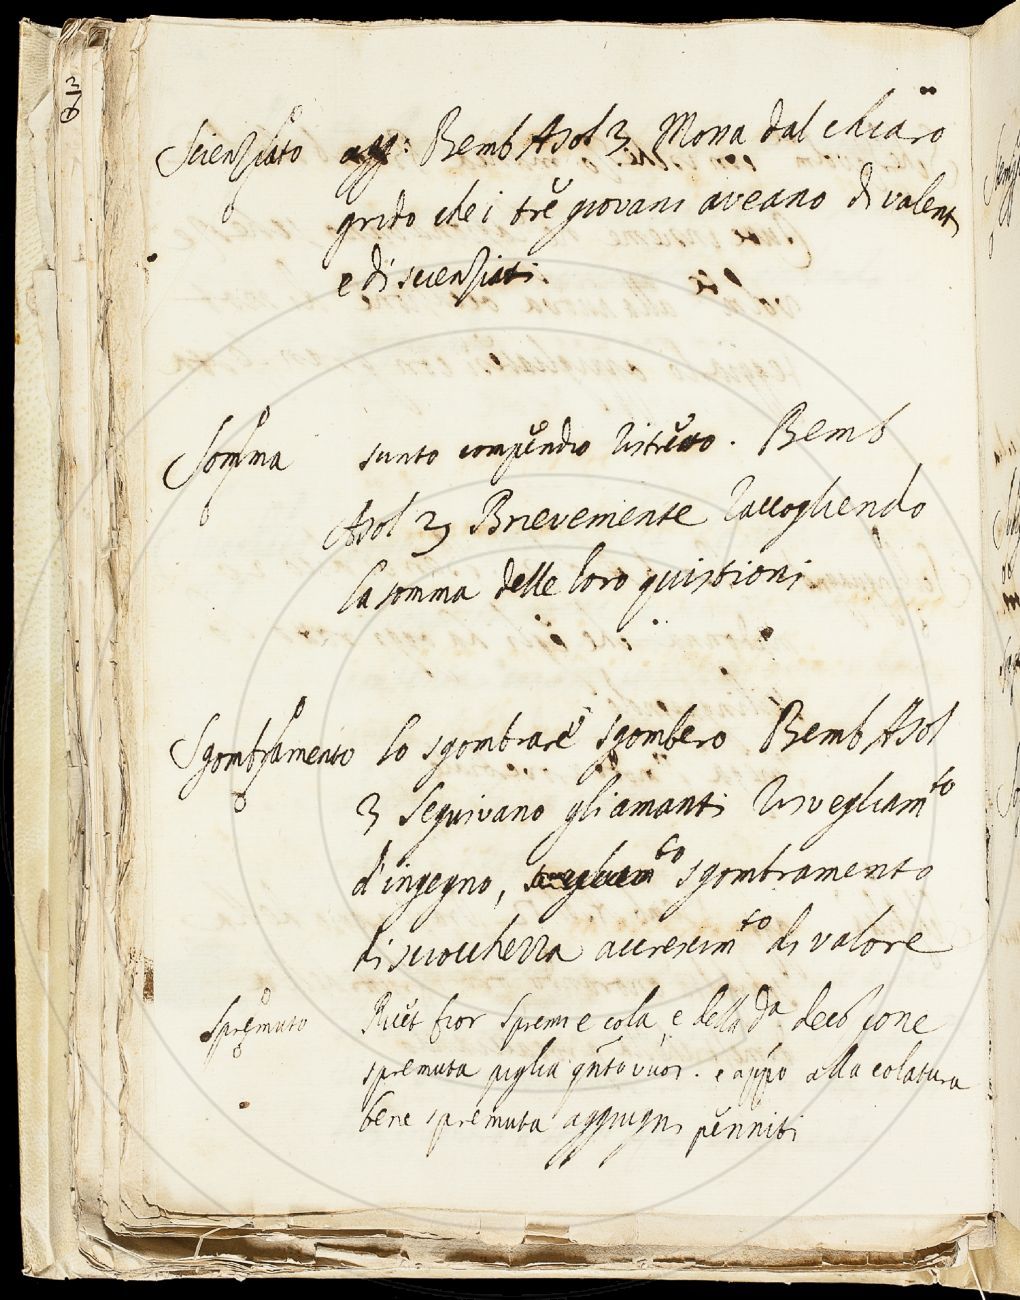 Scienziato agg: Bemb Asol 3 Mossa dal chiaro
grido che i tre giovani aveano di valenti
e di scienziati
Somma sunto compendio ristretto. Bemb
Asol 3 Brievemente raccogliendo
la somma delle loro quistioni
Sgombramento lo sgombrare sgombero Bemb Asol
3 Seguivano gli amanti risvegliamto
d'ingegno, sgombramento
di sciocchezza accrescimto di valore
Spremuto Ricet fior Spremi e cola e della da decozione
spremuta piglia qnto vuoi. e appo alla colatura
bene spremuta aggiugni penniti